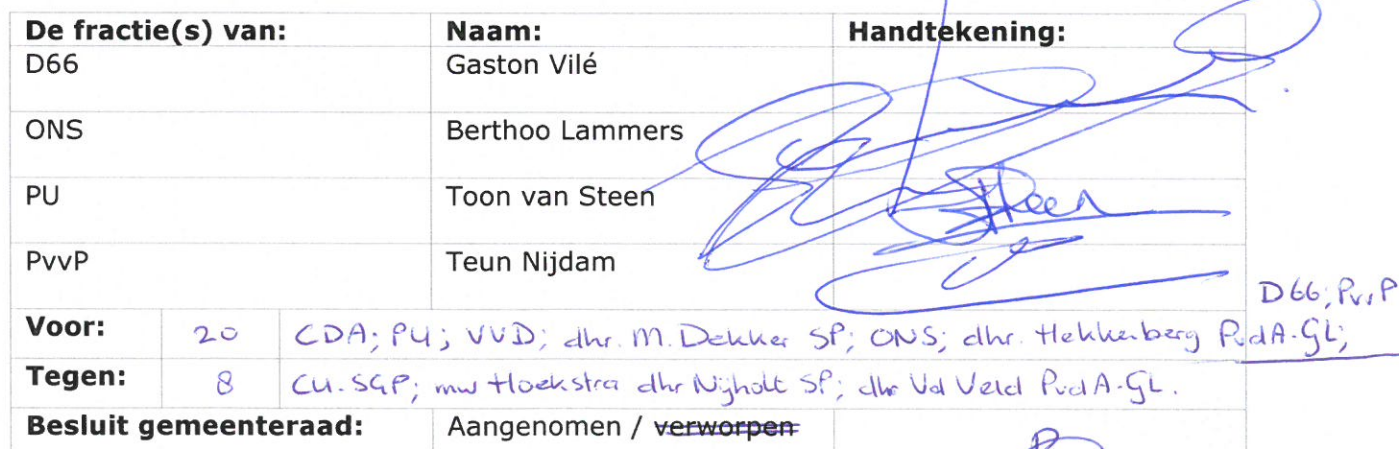 De fractie(s) van: Naam: Handtekening:
D66 Gaston Vilé
ONS Berthoo Lammers
PU Toon van Steen
PvvP Teun Nijdam
D66; PvvP
Voor: 20 CDA; PU; VVD; dhr. M. Dekker SP; ONS; dhr. Hekkenberg PvdA-GL;
Tegen: 8 CU-SGP; mw Hoekstra dhr Nijholt SP; dhr Vd Veld PvdA-GL.
Besluit gemeenteraad: Aangenomen / verworpen